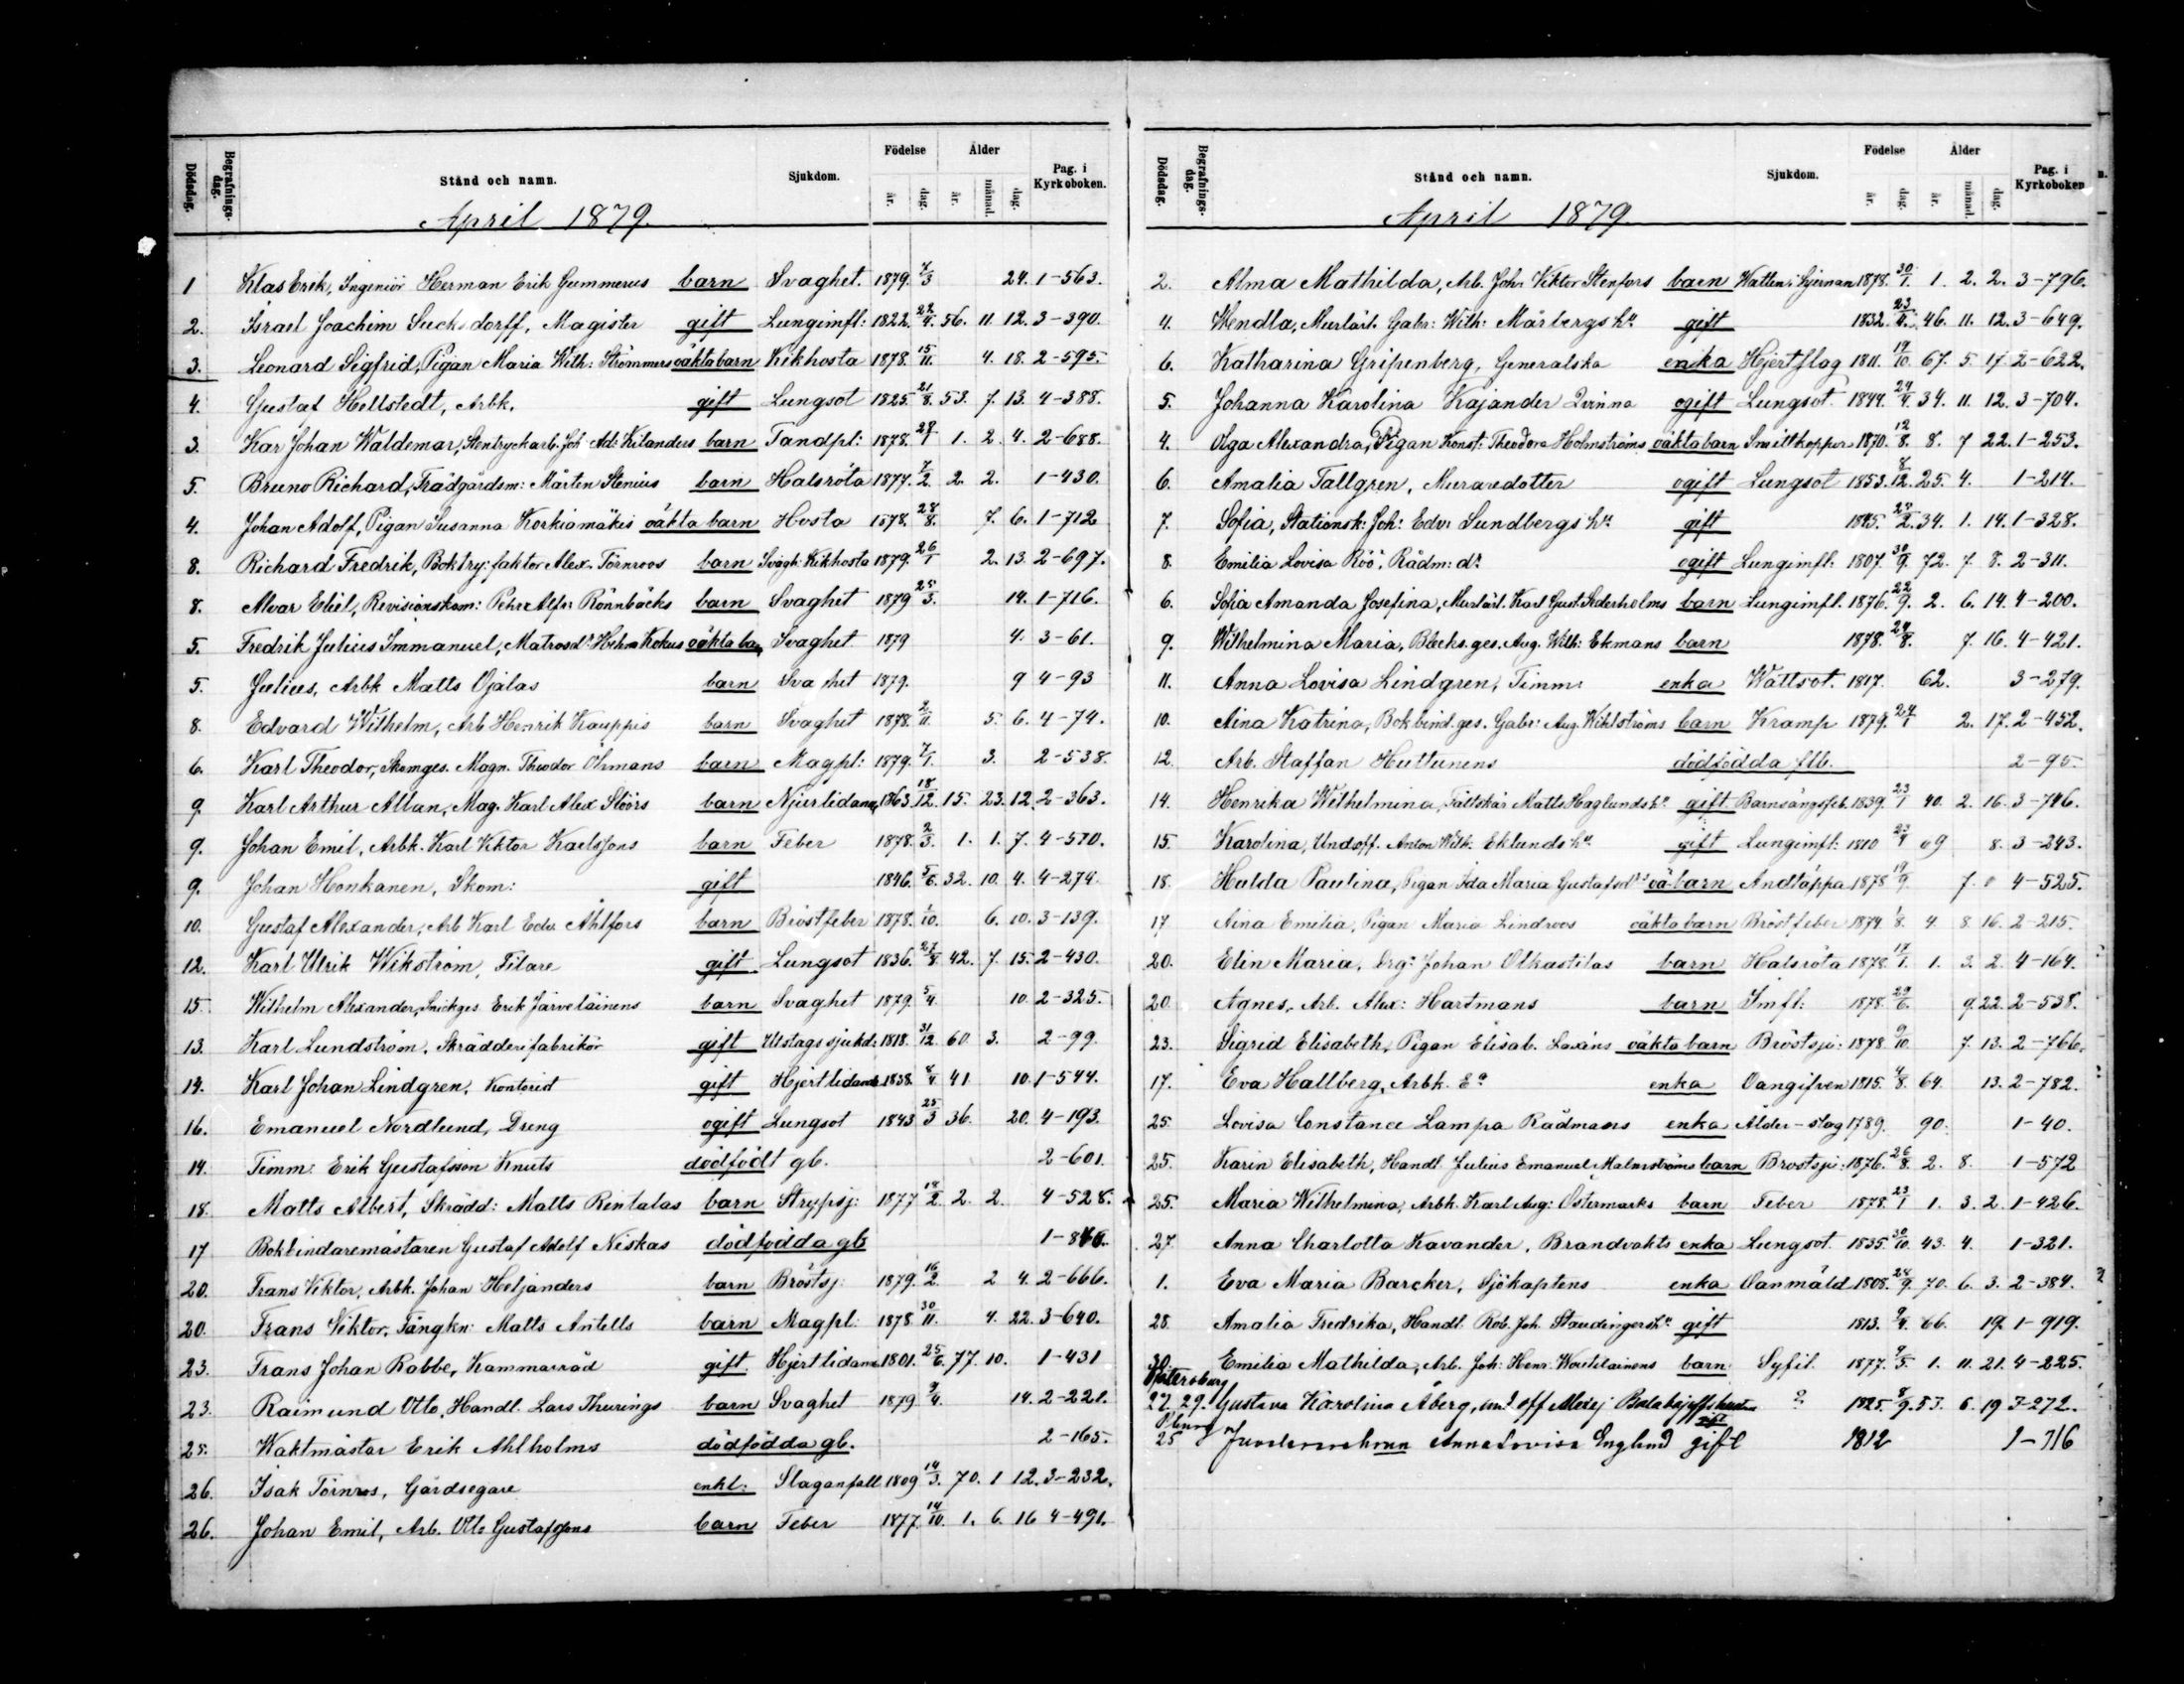 Dödsdag. Begrafnings-dag. Stånd och namn. Sjukdom. Födelse år. dag. Ålder år. månad. dag. Pag. i Kyrkoboken.
April 1879.
1 Klas Erik, Ingeniör Herman Erik Gummerus barn Svaghet. 1879. 7/3 24. 1-563.
2. Israel Joachim Sucksdorff, Magister gift Lungimfl: 1822. 22/4. 56. 11. 12. 3-390.
3. Leonard Sigfrid, Pigan Maria Wilh: Strömmers oäkta barn Kikhosta 1878. 15/11. 4. 18. 2-595.
4. Gustaf Hellstedt, Arbk. gift Lungsot 1825. 21/8. 53. 7. 13. 4-388.
3. Kar Johan Waldemar, Stentryckarb. Joh Ad: Kilanders barn Tandpl: 1878. 28/1 1. 2. 4. 2-688.
5. Bruno Richard, Trädgårdsm: Mårten Stenius barn Halsröta 1877. 7/2. 2. 2. 1-430.
4. Johan Adolf, Pigan Susanna Korkiamäkis oäkta barn Hosta 1878. 28/8. 7. 6. 1-712
8. Richard Fredrik, Boktry: faktor Alex. Törnroos barn Svagh: Kikhosta 1879. 26/1 2. 13. 2-697.
8. Alvar Eliel, Revisionskom: Pehr Alfr: Rönnbäcks barn Svaghet 1879 25/3. 14. 1-716.
5. Fredrik Julius Immanuel, Matrosdr Helma Kokus oäkta barn Svaghet 1879 4. 3-61.
5. Julius, Arbk Matts Ojalas barn Svaghet 1879. 9 4-93
8. Edvard Wilhelm, Arb Henrik Kauppis barn Svaghet 1878. 2/11. 5. 6. 4-74.
6. Karl Theodor, Skomges. Magn. Theodor Öhmans barn Magpl: 1879. 7/1. 3. 2-538.
9. Karl Arthur Allan, Mag. Karl Alex Slöörs barn Njurlidande 1863. 18/12. 15. 23. 12. 2-363.
9. Johan Emil, Arbk. Karl Viktor Karlssons barn Feber 1878. 2/3. 1. 1. 7. 4-570.
9. Johan Honkanen, Skom: gift 1846. 5/6. 32. 10. 4. 4-274.
10. Gustaf Alexander, Arb Karl Edv. Ahlfors barn Bröstfeber 1878. 1/10. 6. 10. 3-139.
12. Karl Ulrik Wikström, Filare gift Lungsot 1836. 27/8. 42. 7. 15. 2-430.
15. Wilhelm Alexander, Snickges Erik Järveläinens barn Svaghet 1879. 5/4. 10. 2-325.
13. Karl Lundström, Skrädderifabrikör gift Utslags sjukd. 1818. 31/12 60. 3. 2-99.
14. Karl Johan Lindgren, Kontorist gift Hjertlidande 1838. 4/4. 41 10. 1-544.
16. Emanuel Nordlund, Dreng ogift Lungsot 1843 25/3 36. 20. 4-193.
14. Timm: Erik Gustafsson Knuts dödfödt gb. 2-601.
18. Matts Albert, Skrädd: Matts Rentalas barn Strypsj: 1877 18/2. 2. 2. 4-528.
17 Bokbindaremästaren Gustaf Adolf Niskas dödfödda gb
20. Frans Viktor, Arbk. Johan Heljanders barn Bröstsj: 1879. 16/2. 2 4. 2-666.
20. Frans Viktor, Fängkn: Matts Antells barn Magpl: 1878 30/11. 4. 22. 3-640.
23. Frans Johan Rabbe, Kammarråd gift. Hjertlidande 1801. 25/6. 77. 10. 1-431
23. Raimund Otto, Handl. Lars Thurings barn Svaghet 1879 9/4. 14. 2-221.
25. Waktmästar Erik Ahlholms dödfödda gb. 2-165.
26. Isak Törnros, Gårdsegare enkl: Slaganfall 1809 14/3. 70. 1 12. 3-232.
26. Johan Emil, Arb. Otto Gustafssons barn Feber 1877. 14/10. 1. 6. 16 4-491.
Dödsdag. Begrafnings-dag. Stånd och namn. Sjukdom. Födelse år. dag. Ålder år. månad. dag. Pag. i Kyrkoboken
April 1879.
2. Alma Mathilda, Arb. Joh. Viktor Stenfors barn Watten i Hjernan 1878. 30/1. 1. 2. 2. 3-796.
4. Wendla, Murlärl. Gabr: Wilh: Mårbergs hu gift 1832. 23/4. 46. 11. 12. 3-649.
6. Katharina Gripenberg, Generalska enka Hjertslag 1811. 19/10. 67. 5. 17 2-622.
5. Johanna Karolina Kajander Qvinna ogift Lungsot 1844. 24/4. 34. 11. 12. 3-704.
4. Olga Alexandra, Pigan Konst: Theodora Holmströms oäkta barn Smittkoppor 1870. 12/8. 8. 7 22. 1-253.
6. Amalia Tallgren, Muraredotter ogift Lungsot 1853. 8/12. 25. 4. 1-214.
7. Sofia, Stationsk: Joh: Edv: Sundbergs hu gift 1845. 24/2. 34. 1. 14. 1-328.
8. Emilia Lovisa Röö, Rådm: dr ogift Lungimfl: 1807. 30/9. 72. 7. 8. 2-311.
6. Sofia Amanda Josefina, Murlärl. Karl Gust. Sederholms barn Lungimfl. 1876. 22/9. 2. 6. 14. 4-200.
9. Wilhelmina Maria, Blecks. ges. Aug. Wilh: Ekmans barn 1878. 24/8. 7. 16. 4-421.
11. Anna Lovisa Lindgren, Timm: enka Wattsot. 1817. 62. 3-279.
10. Aina Katrina, Bokbind. ges. Gabr: Aug. Wihlströms barn Kramp 1879. 24/1 2. 17. 2-452.
12. Arb. Staffan Huttunens dödfödda flb. 2-95.
14. Henrika Wilhelmina, Fältskär Matts Haglunds hu gift Barnsängsfeb. 1839. 23/1 40. 2. 16. 3-746.
15. Karolina, Undoff. Anton Wilh: Eklunds hu gift Lungimfl: 1810 23/4 69 8. 3-243.
18. Hulda Paulina, Pigan Ida Maria Gustafsdrs oä barn Andtäppa 1878 19/9. 7. 4-525.
17 Aina Emilia, Pigan Maria Lindroos oäkta barn Bröstfeber 1874. 1/8. 4. 8 16. 2-215.
20. Elin Maria, Drg: Johan Olkastilas barn Halsröta 1878. 17/1. 1. 3. 2. 4-164.
20. Agnes, Arb. Alex: Hartmans barn Imfl: 1878. 29/6. 9. 22. 2-538.
23. Sigrid Elisabeth, Pigan Elisab. Laxéns oäkta barn Bröstsju: 1878 9/10. 7. 13. 2-766.
17. Eva Hallberg, Arbk. Ea enka Oangifven 1815. 4/8. 64. 13. 2-782.
25. Lovisa Constance Lampa Rådmans enka Ålder-slag 1789. 90. 1-40.
25. Karin Elisabeth, Handl. Julius Emanuel Malmströms barn Brostsju: 1876. 26/8. 2. 8. 1-572
25. Maria Wilhelmina, Arbk. Karl Aug: Östermarks barn Feber 1878. 23/1 1. 3. 2. 1-426.
27. Anna Charlotta Kavander, Brandvakts enka Lungsot. 1835. 30/10. 43. 4. 1-321.
1. Eva Maria Barcker, Sjökaptens enka Oanmäld 1808. 28/9. 70. 6. 3. 2-384.
28. Amalia Fredrika, Handl. Rob. Joh. Staudingers hu gift 1813. 9/4. 66. 19. 1-919.
30. Emilia Mathilda, Arb. Joh: Henr: barn Syfil. 1877. 9/5. 1. 11. 21. 4-225.
Petersburg
27. 29. Gustava Karolina Åberg, und. off gift ? 1825. 8/9. 53. 6. 19 3-272.
25 Anna Lovisa Englund gift 1812 1-716